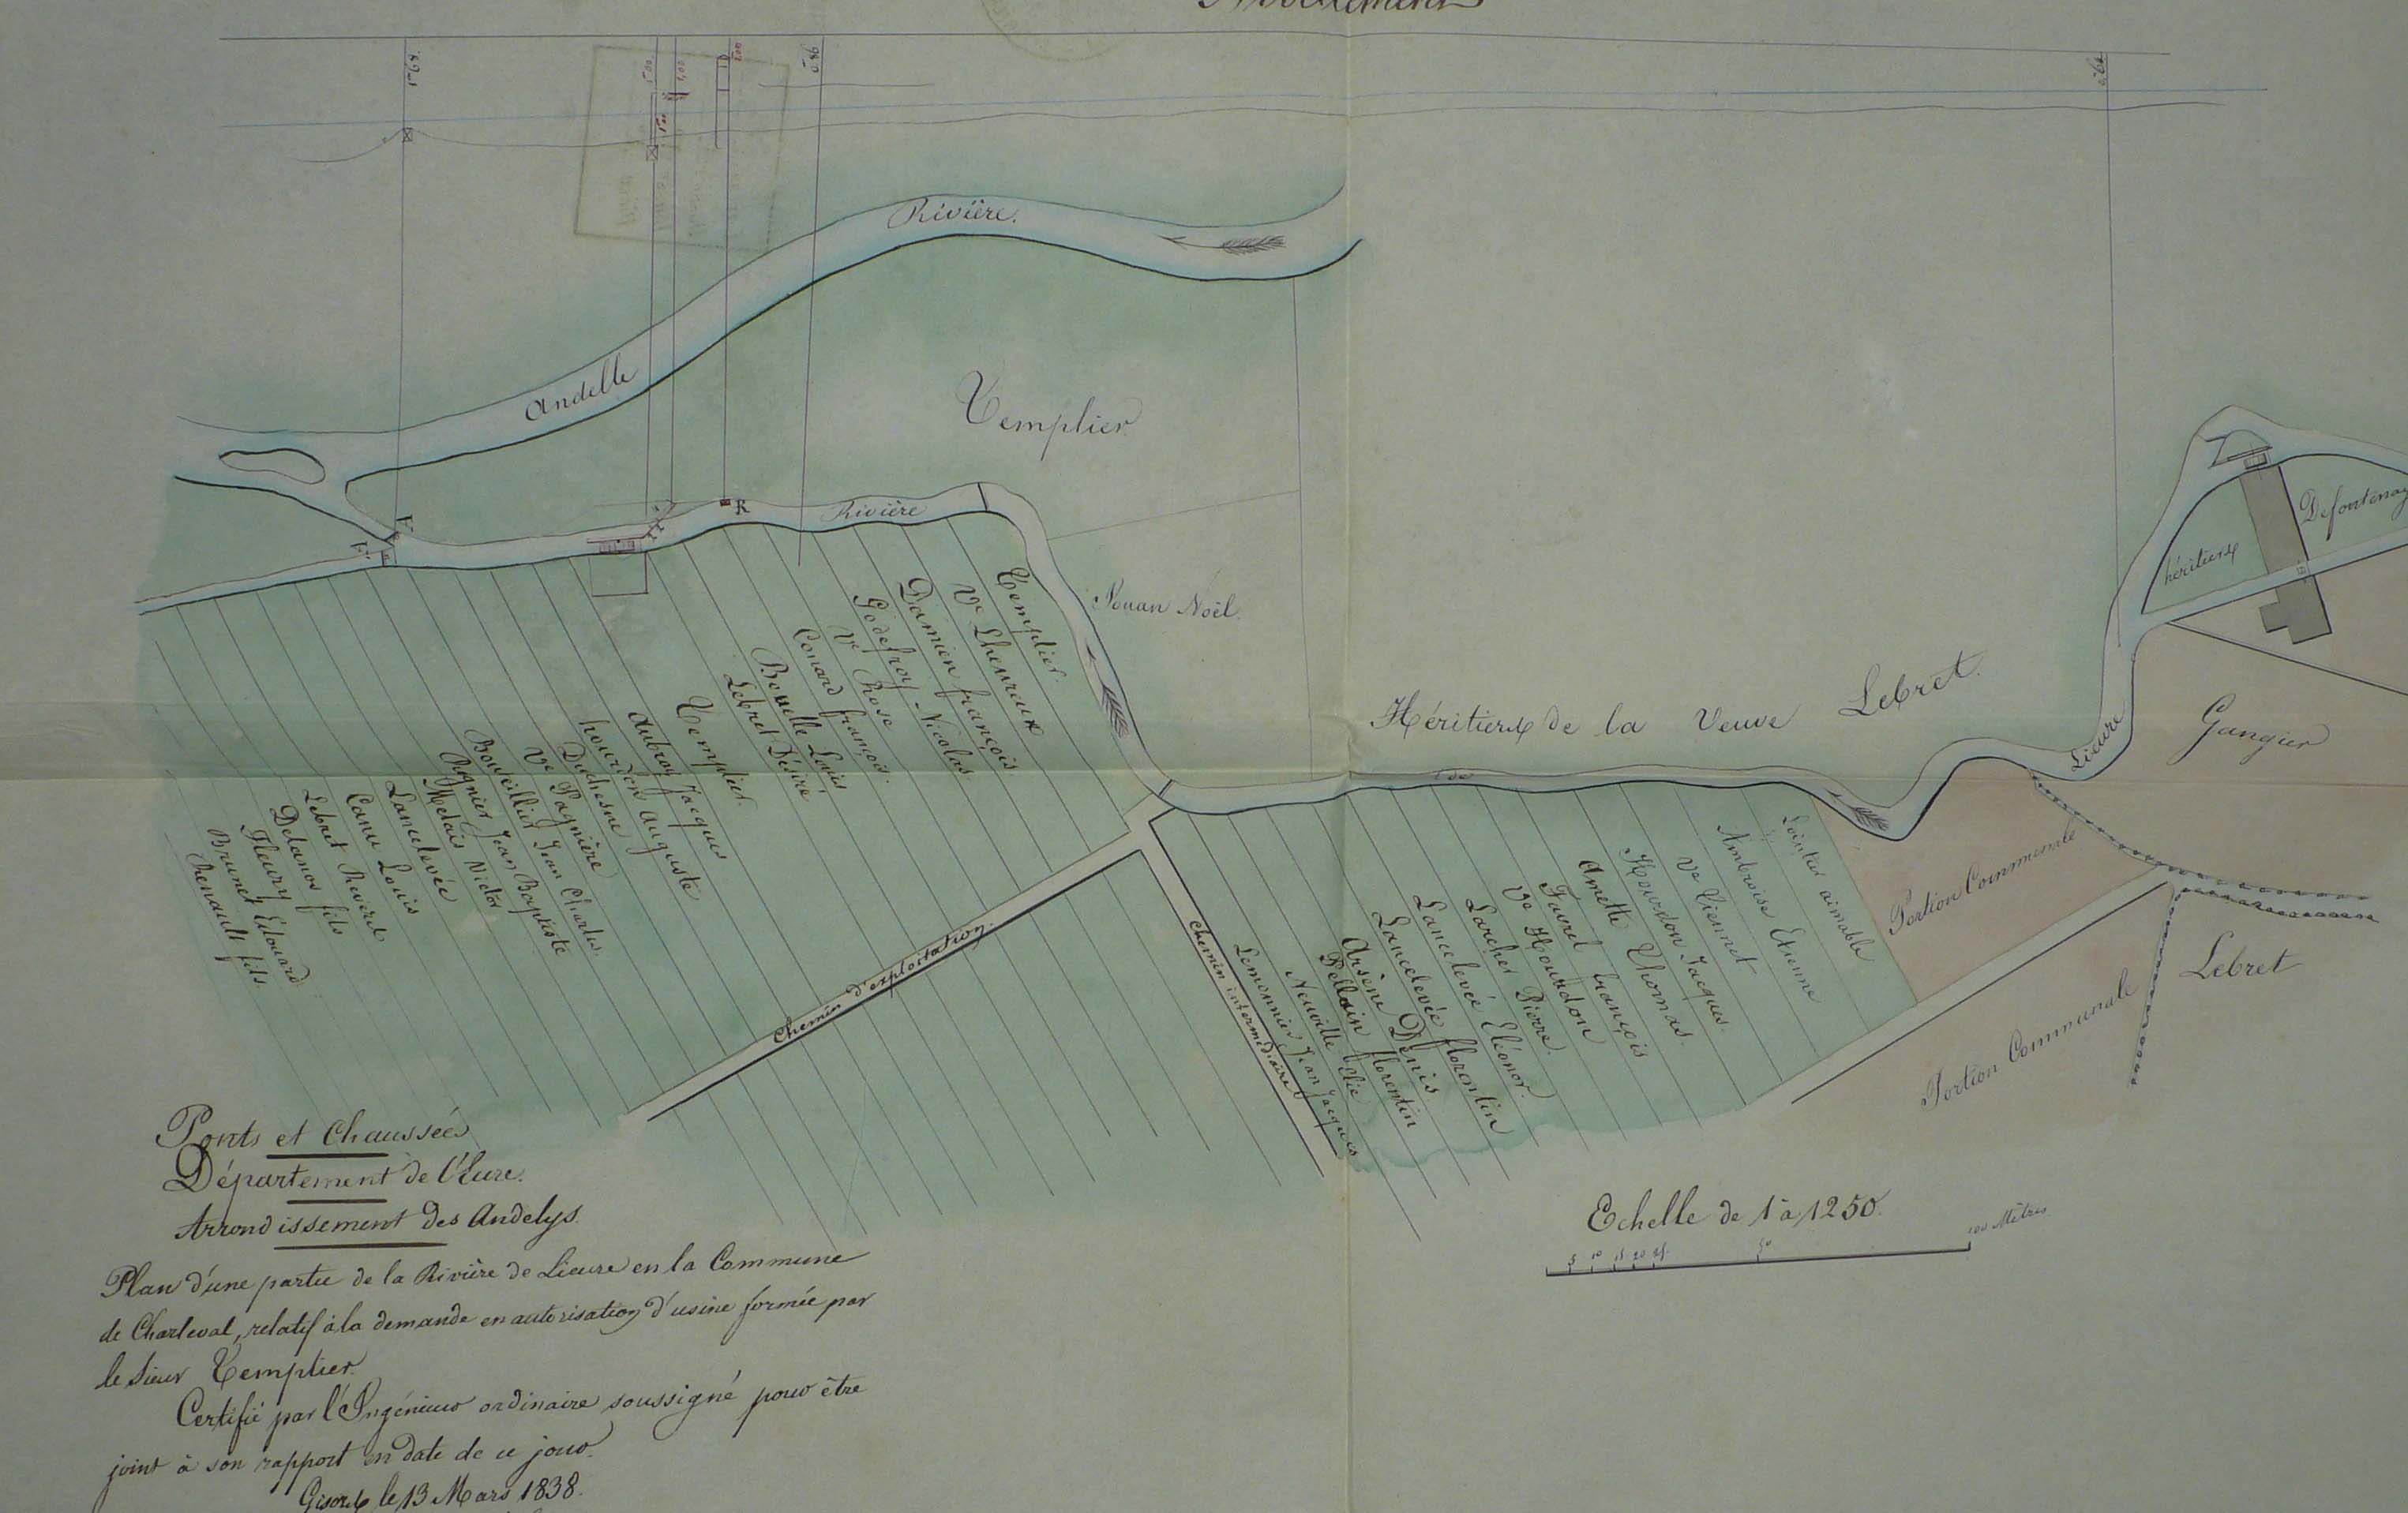 Nivellement
1,69
1,00
1,00
1,00
0,86
Rivière.
Andelle
Templier
R
Rivière
F
F
Defontenay
héritiers
Pouan Noël.
Templier.
Ve Lheureux
Damien françois
Godefroy Nicolas
Ve Rose
Conard françois.
Bouelle Louis
Lebret Désiré
Templier.
Aubray Jacques
hourdon auguste
Duchesne
Ve Pagnière
Bouveillier Jean Charles
Rognier Jean Baptiste
Melais Victor
Lancelevée
Canu Louis
Lebret Reverd
Delanos fils
Fleury Edouard
Brunet
Renault fils.
Héritiers de la Veuve Lebret.
Lieure
de
Gangier
Chemin d'exploitation.
Chemin intermédiaire
Lemonnier Jean Jacques
Neuville Elie
Pellain florentin
Arsène Denis
Lancelevée florentin
Lancelevée Eléonor.
Larcher Pierre.
Ve Hourdon
Favrel françois
Amette Thomas.
Hourdon Jacques.
Ve Viennet
Ambroise Etienne
Lointier aimable
Portion Communale
Portion Communale
Lebret
Ponts et Chaussées
Département de l'Eure.
Arrondissement des Andelys.
Plan d'une partie de la Rivière de Lieure en la Commune
de Charleval, relatif à la demande en autorisation d'usine formée par
le Sieur Templier.
Certifié par l'Ingénieur ordinaire soussigné pour être
joint à son rapport en date de ce jour.
Gisors le 13 Mars 1838.
Echelle de 1 à 1250.
5 10 15 20 25 50 100 Mètres